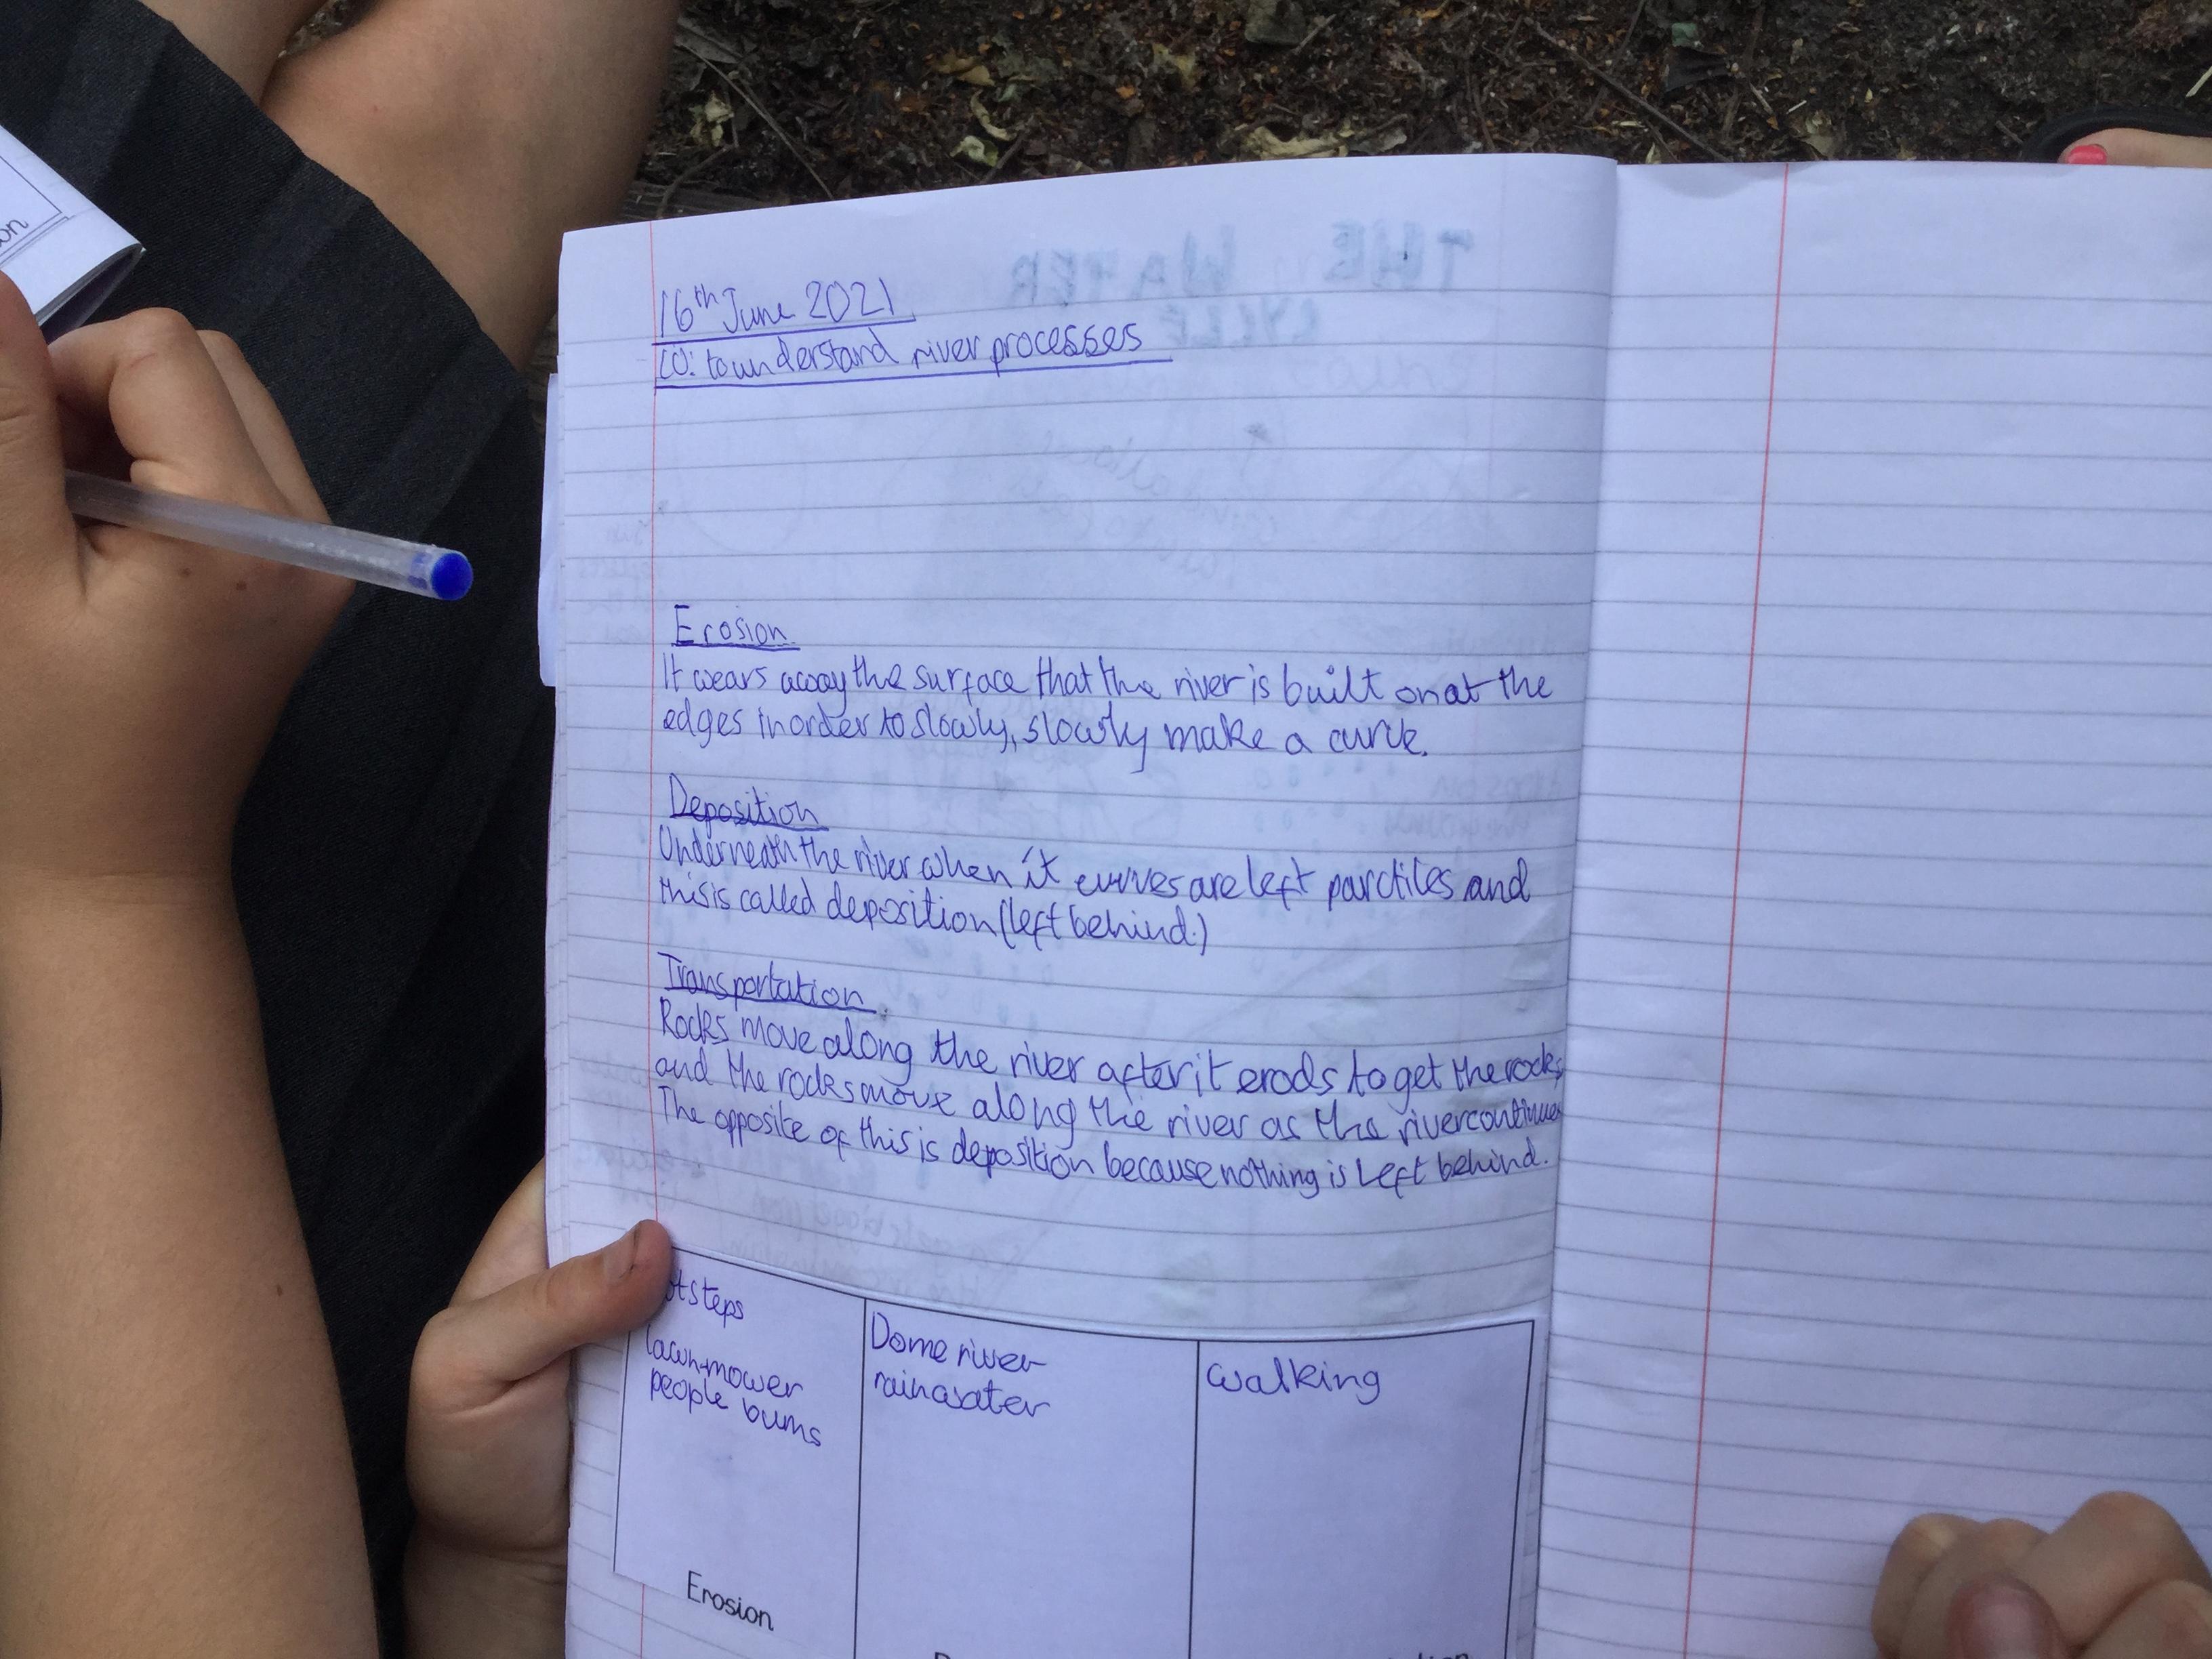 16th June 2021
LO: to understand river processes
Erosion
It wears away the surface that the river is built on at the
edges in order to slowly, slowly make a curve.
Deposition
Underneath the river when it curves are left parctiles and
this is called deposition (left behind.)
Transportation
Rocks move along the river after it erods to get the rocks
and the rocks move along the river as the river continues
The opposite of this is deposition because nothing is left behind.
otsteps
lawn-mower
people bums
Erosion
Dome river
rainwater
walking
THE WATER
CYCLE